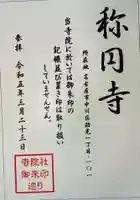 称円寺
所在地 名古屋市中川区鈴光一丁目一〇一
当寺院に於いては御朱印の
記帳並び置き印は取り扱い
していませんせん。
参拝 令和五年三月二十三日
寺院社
御朱印
巡り